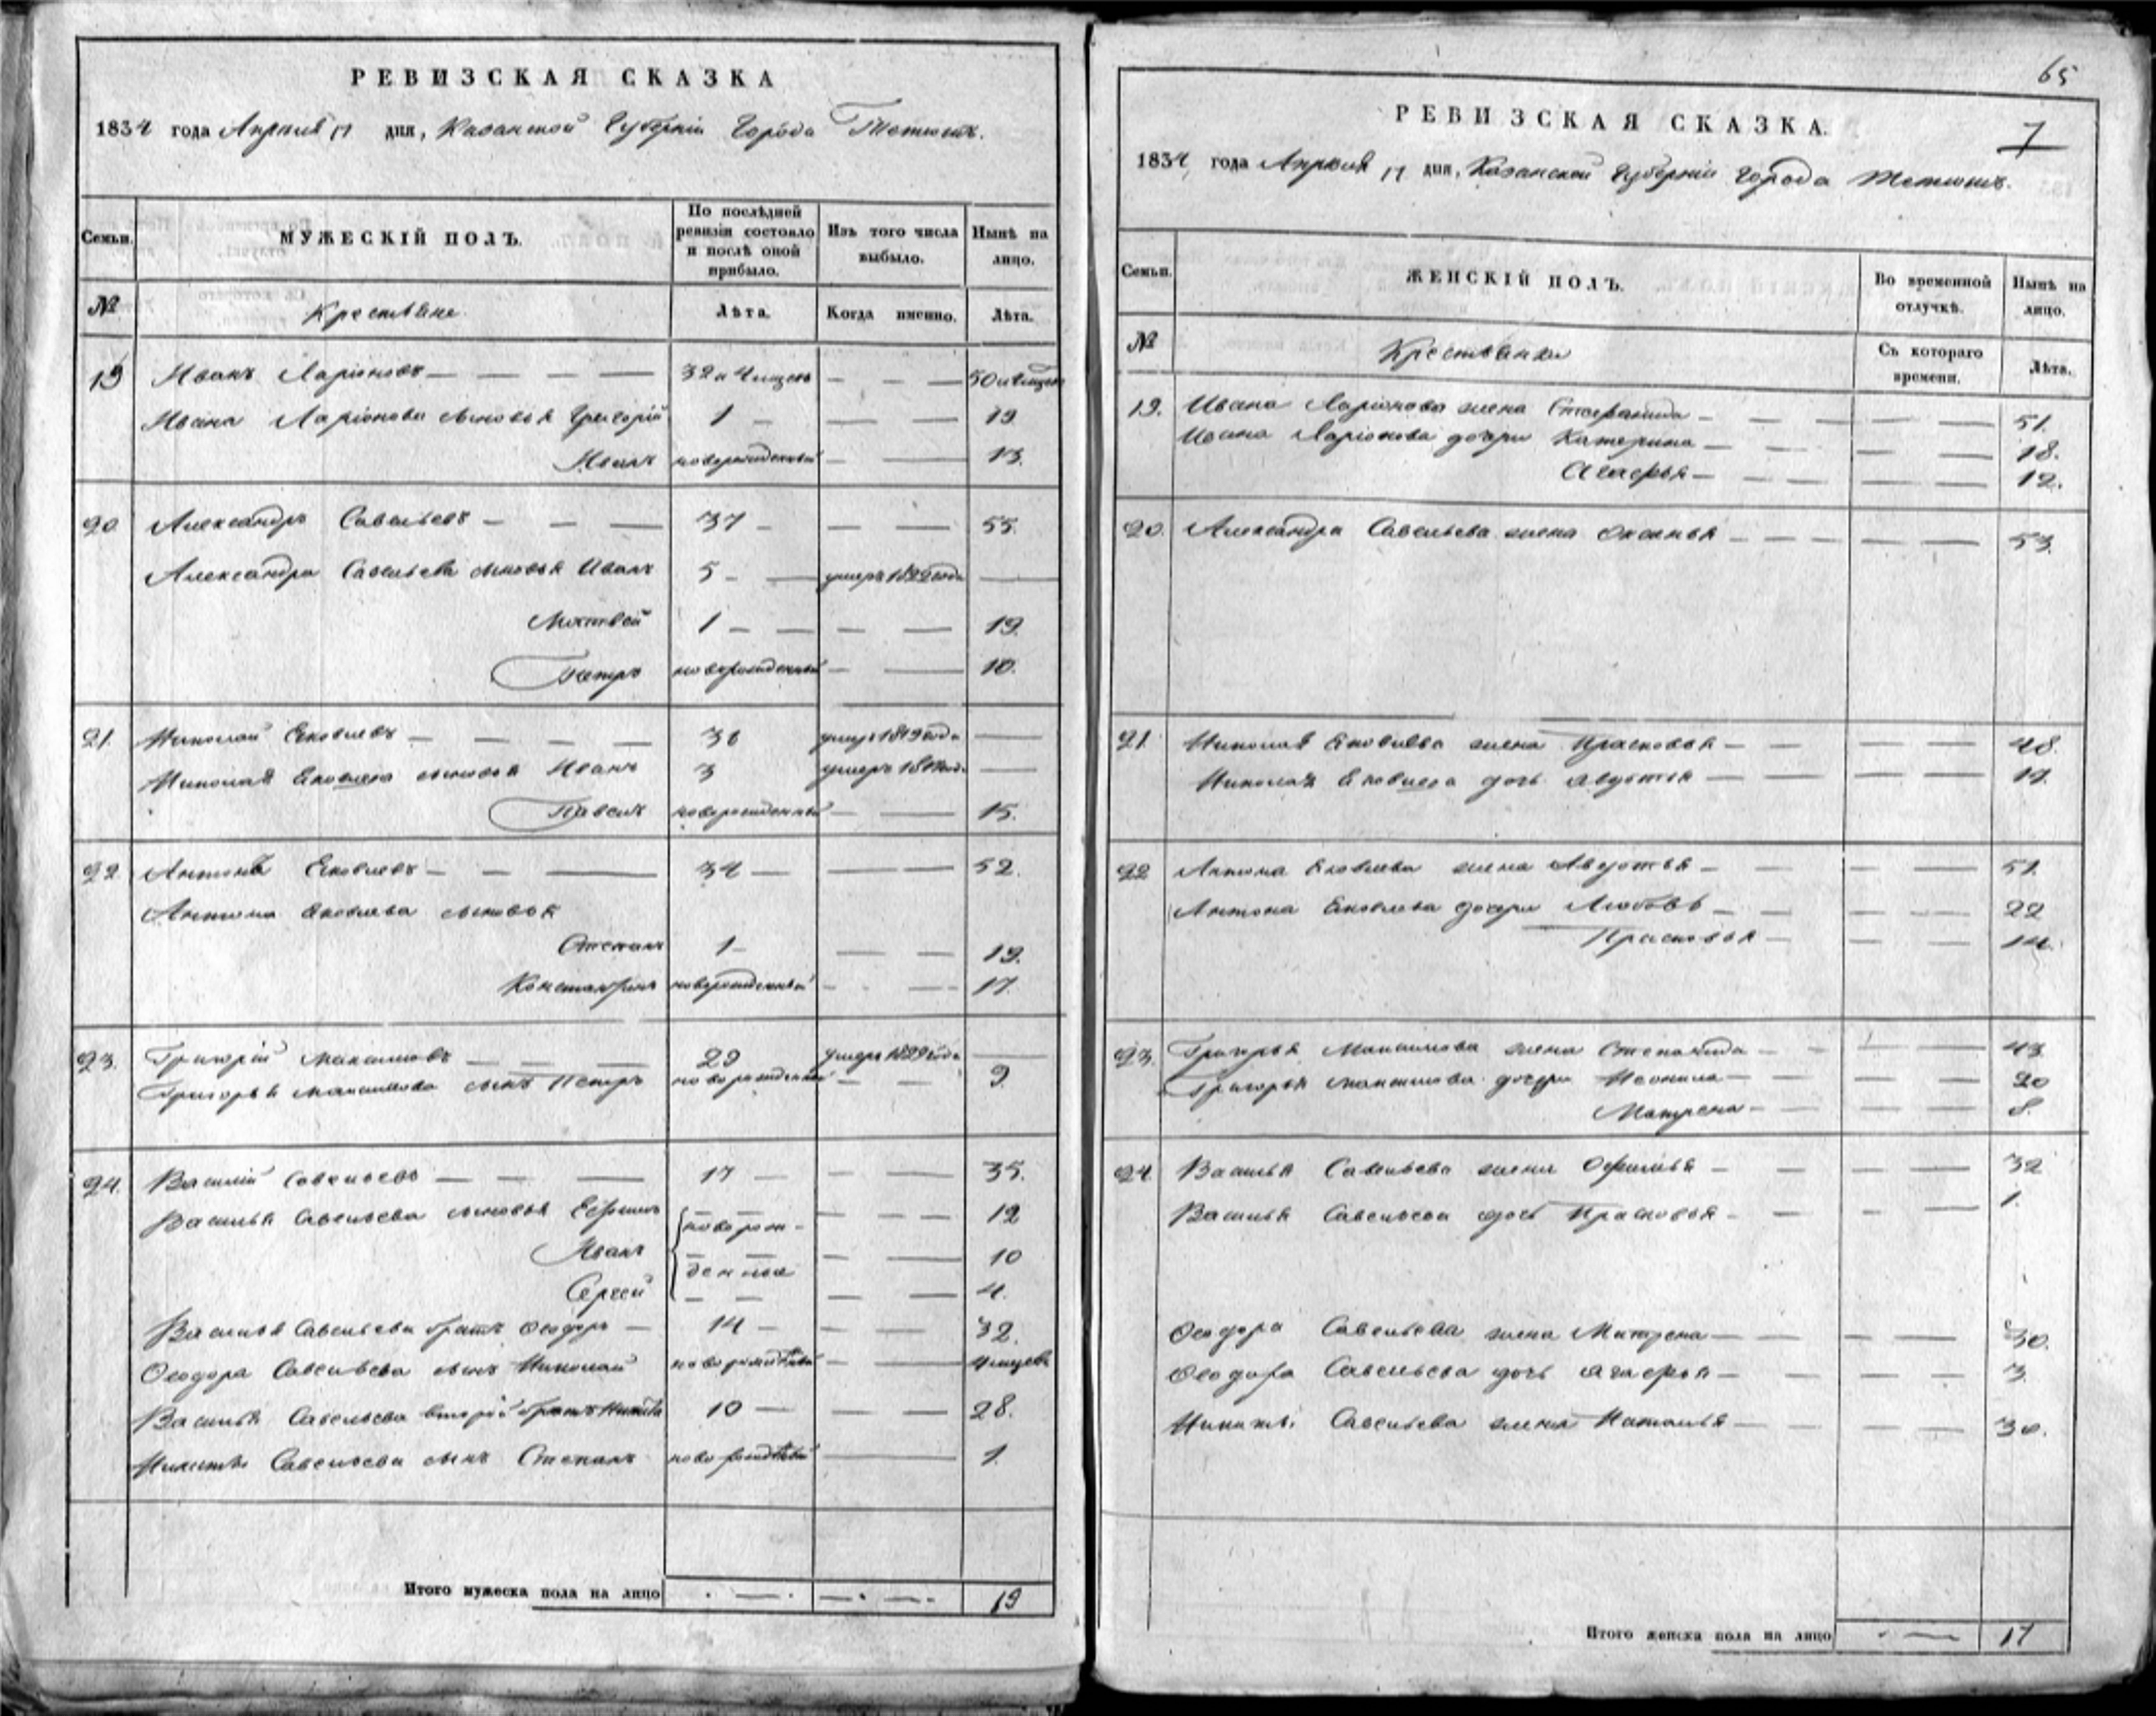 РЕВИЗСКАЯ СКАЗКА
1834 года Апреля 17 дня, Казанской Губерніи Города Тетюшъ.
Семьи. МУЖЕСКІЙ ПОЛЪ. По послѣдней ревизіи состояло и послѣ оной прибыло. Изъ того числа выбыло. Нынѣ на лицо.
№ Крестьяне Лѣта. Когда именно. Лѣта.
19 Иванъ Ларіоновъ — — — — 32 и 4 — — —
Ивана Ларіонова сыновья Григорій 1 — — — 19
Иванъ новорожденный — — 13.
20 Александръ Савельевъ — — — 37 — — — 55.
Александра Савельева сыновья Иванъ 5 — — умеръ 1822 года —
Матвей 1 — — — — 19.
Петръ новорожденный — — 10.
21. Николай Яковлевъ — — — — 36 умеръ 1819 года —
Николая Яковлева сыновья Иванъ 3 умеръ —
Павелъ новорожденный — — 15.
22 Антонъ Яковлевъ — — — 34 — — — 52.
Антона Яковлева сыновья
Степанъ 1 — — — 19.
Константинъ новорожденный — — 17.
23. Григорій Максимовъ — — — 29 умеръ 1829 года —
Григорья Максимова сынъ Петръ новорожденный — — 9.
24. Василій Савельевъ — — — 17 — — — 35.
Василья Савельева сыновья Ефимъ — — — 12
новорож-
Иванъ — — — — 10
денные
Сергей — — — — 4.
Василья Савельева братъ Ѳеодоръ — 14 — — — 32.
Ѳеодора Савельева сынъ Николай новорожденный — — 4
Василья Савельева второй братъ Никита 10 — — — 28.
Никиты Савельева сынъ Степанъ новорожденный — 1.
Итого мужеска пола на лицо 19
65
РЕВИЗСКАЯ СКАЗКА.
7
1834 года Апреля 17 дня, Казанской Губерніи Города Тетюшъ.
Семьи. ЖЕНСКІЙ ПОЛЪ. Во временной отлучкѣ. Нынѣ на лицо.
№ Крестьянки Съ котораго времени. Лѣта.
19. Ивана Ларіонова жена Степанида — — — — — 51.
Ивана Ларіонова дочери Катерина — — — — 18.
Агафья — — — — — 12.
20. Александра Савельева жена — — — — — 53.
21. Николая Яковлева жена Прасковья — — — — 48.
Николая Яковлева дочь Авдотья — — — — 17.
22 Антона Яковлева жена Авдотья — — — — 51.
Антона Яковлева дочери Любовь — — — — 22
Прасковья — — — — 14.
23. Григорья Максимова жена Степанида — — — — 43
Григорья Максимова дочери Неонила — — — — 20
Матрена — — — — 8.
24. Василья Савельева жена Офимья — — — — 32
Василья Савельева дочь Прасковья — — — — 1.
Ѳеодора Савельева жена Матрена — — — — 30.
Ѳеодора Савельева дочь Агафья — — — — 3
Никиты Савельева жена Наталья — — — — 30.
Итого женска пола на лицо 17